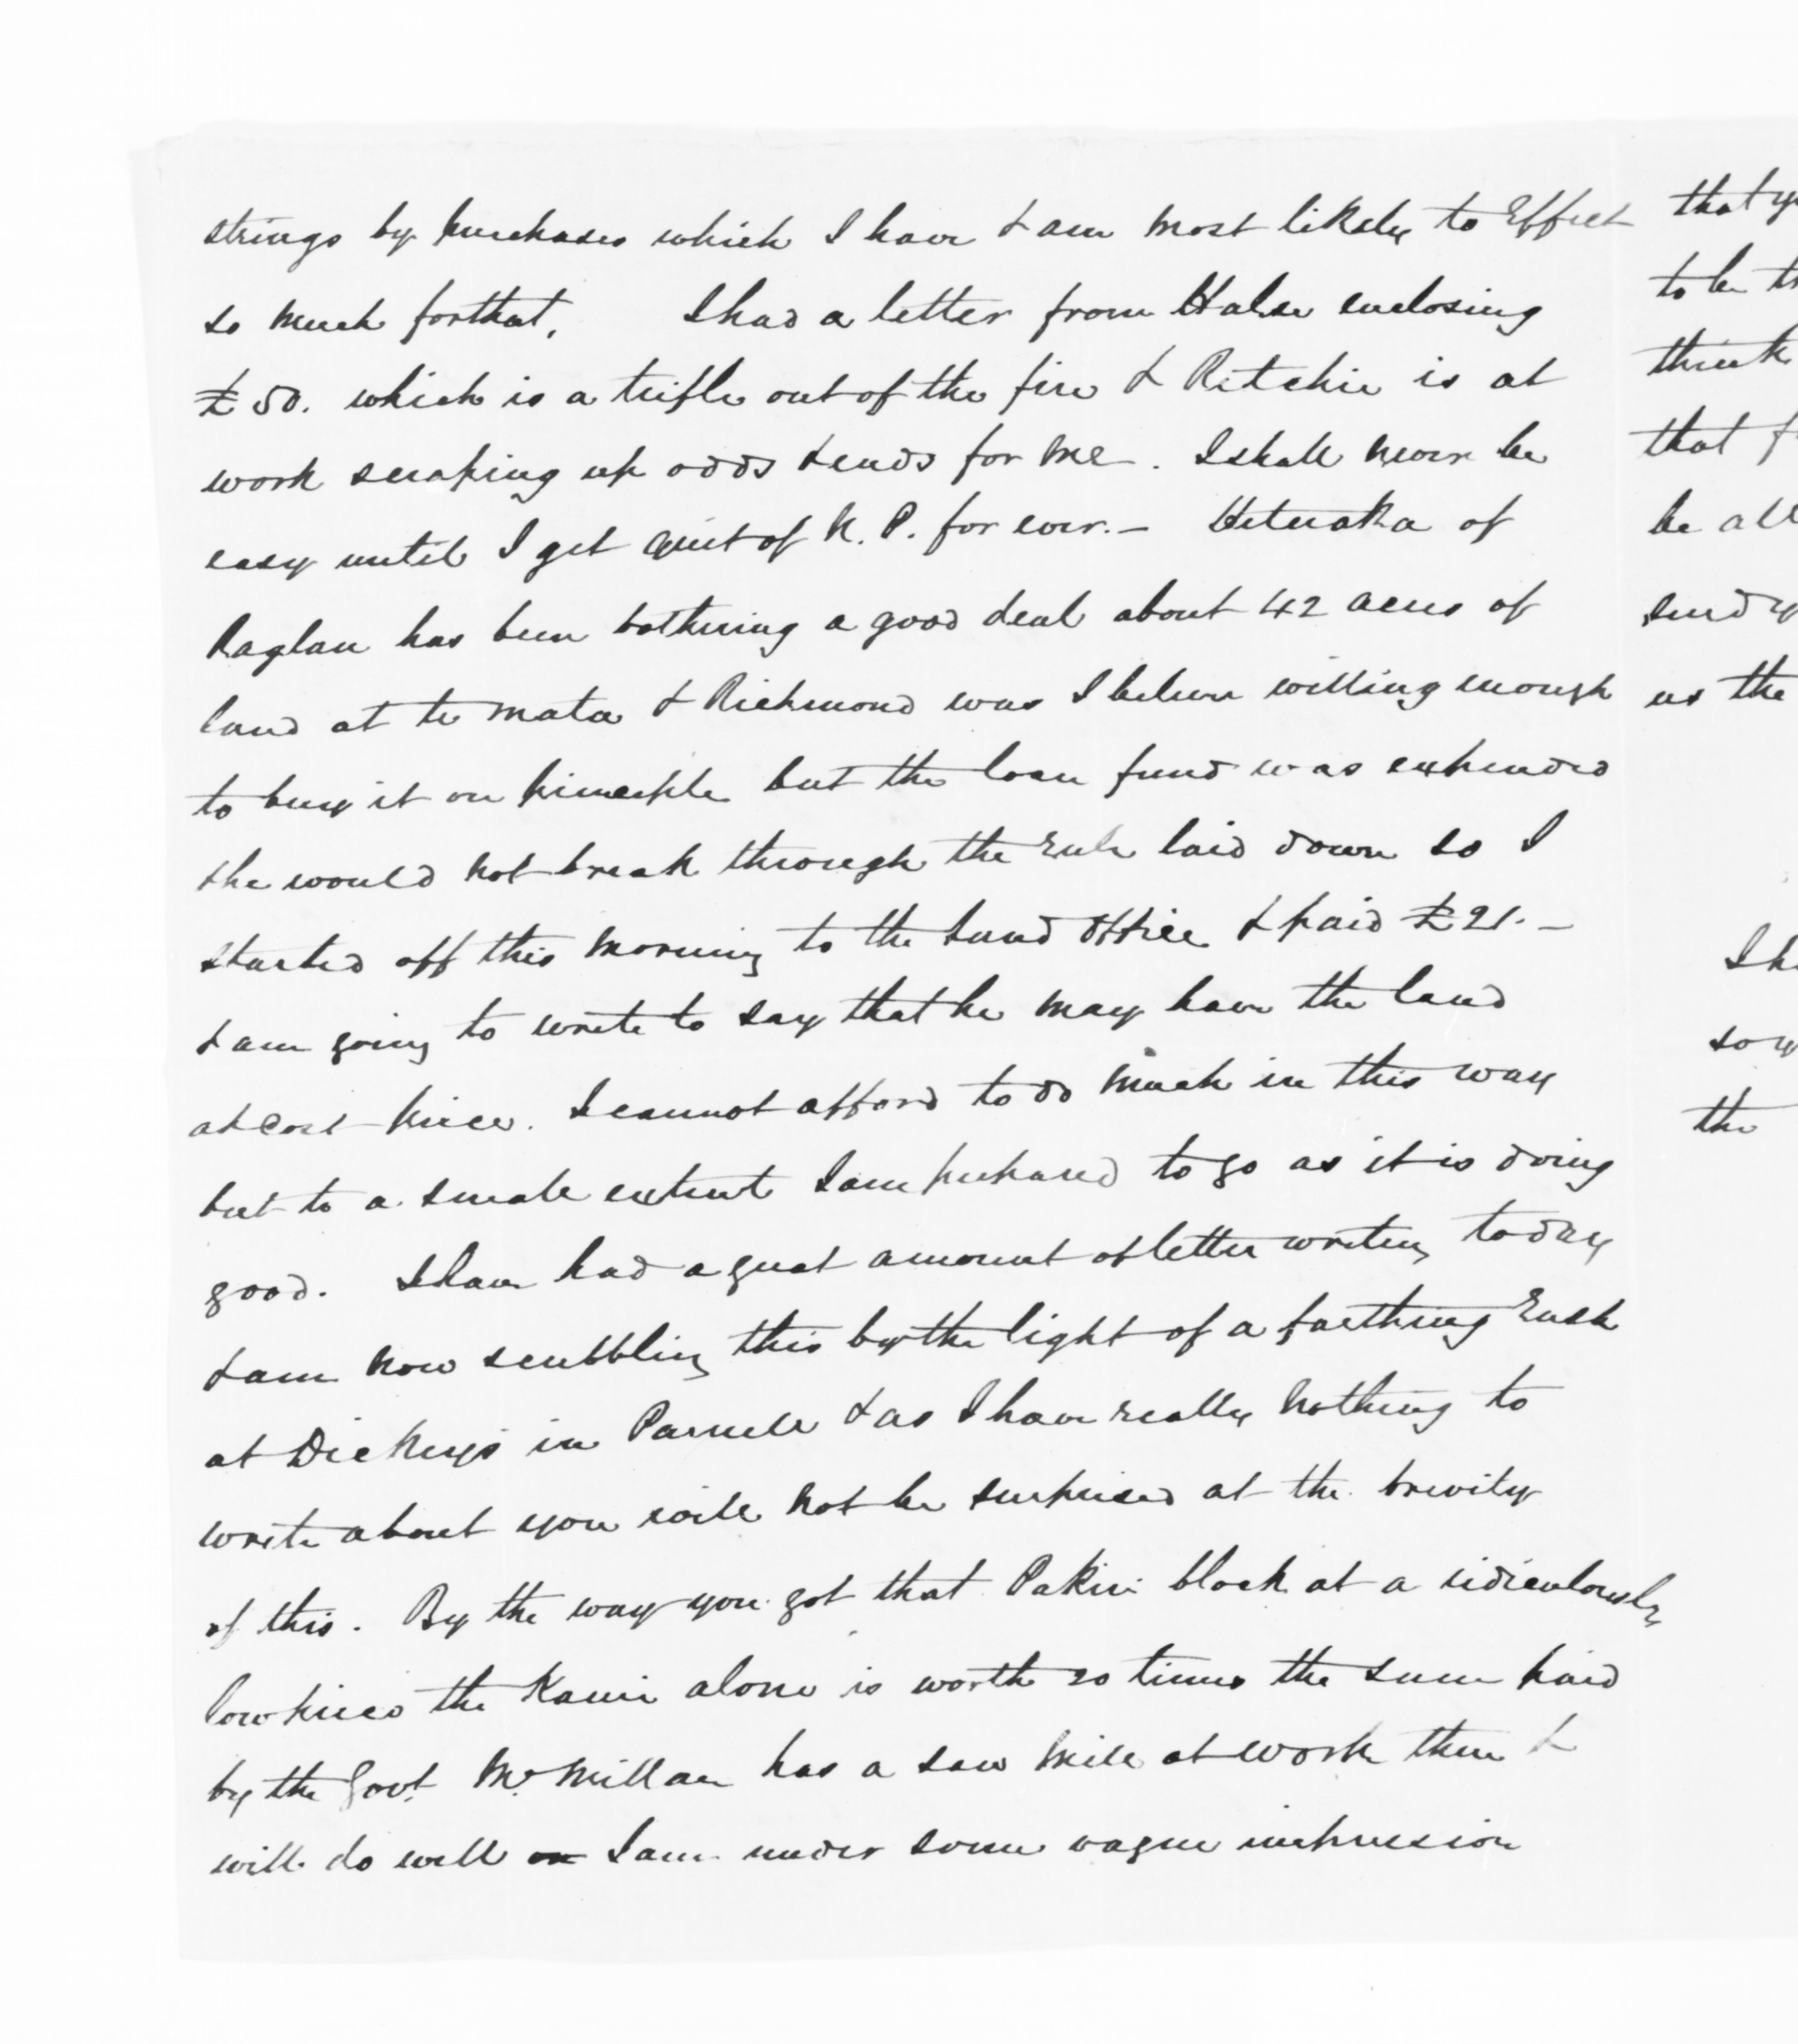 strings by purchases which I have & am most likely to Effect
so much for that, I had a letter from Halse enclosing
£50. which is a trifle out of the fire & Ritchie is at
work scraping up odds & ends for me. I shall never be
easy until I get quit of N. P. for ever. — Hetaraka of
Raglan has been bothering a good deal about 42 acres of
land at te mata & Richmond was I believe willing enough
to buy it on principle but the loan fund was expended
& he would not break through the rule laid down so I
started off this morning to the Land Office & paid £21. —
& am going to write to say that he may have the land
at cost price. I cannot afford to do much in this way
but to a small extent I am prepared to go as it is doing
good. I have had a great amount of letter writing today
& am now scribbling this by the light of a farthing rush
at Dickeys in Parnell & as I have really nothing to
write about you will not be surprised at the brevity
of this. By the way you got that Pakiri block at a ridiculously
low price the Kauri alone is worth 20 times the sum paid
by the Govt. McMillan has a saw mill at work there &
will do well I am under some vague impression
that
to be
think
that
be all
send
us the
I
so
the